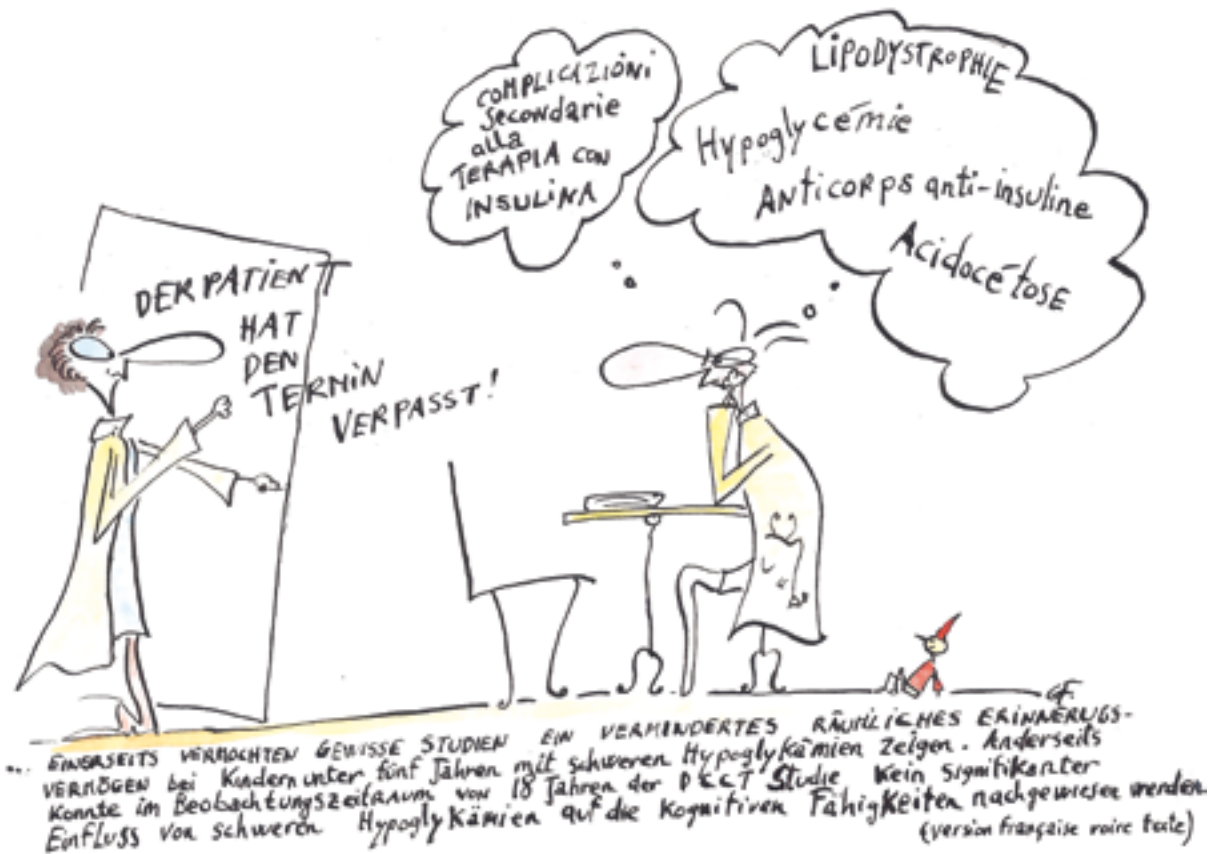 COMPLICAZIONI
secondarie
alla
TERAPIA con
INSULINA
LIPODYSTROPHIE
Hypoglycémie
Anticorps anti-insuline
Acidocétose
DER PATIENT
HAT
DEN
TERMIN
VERPASST!
GF.
... EINERSEITS VERMOCHTEN GEWISSE STUDIEN EIN VERMINDERTES RÄUMLICHES ERINNERUGS-
VERMÖGEN bei Kindern unter fünf Jahren mit schweren Hypoglykämien zeigen. Anderseits
Konnte im Beobachtungszeitraum von 18 Jahren der DCCT Studie Kein signifikanter
Einfluss von schweren Hypoglykämien auf die Kognitiven Fähigkeiten nachgewiesen werden.
(version française voire texte)